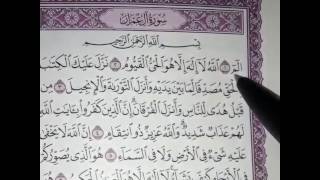 سُورَةُ آلِ عِمْرَانَ
بِسْمِ اللَّهِ الرَّحْمَٰنِ الرَّحِيمِ
الٓمٓ ١ اللَّهُ لَا إِلَٰهَ إِلَّا هُوَ الْحَيُّ الْقَيُّومُ ٢ نَزَّلَ عَلَيْكَ الْكِتَٰبَ
بِالْحَقِّ مُصَدِّقًا لِّمَا بَيْنَ يَدَيْهِ وَأَنزَلَ التَّوْرَىٰةَ وَالْإِنجِيلَ ٣
قَبْلُ هُدًى لِّلنَّاسِ وَأَنزَلَ الْفُرْقَانَ إِنَّ الَّذِينَ كَفَرُوا بِـَٔايَٰتِ اللَّهِ
لَهُمْ عَذَابٌ شَدِيدٌ وَاللَّهُ عَزِيزٌ ذُو انتِقَامٍ ٤ إِنَّ اللَّهَ لَا يَخْفَىٰ
عَلَيْهِ شَيْءٌ فِي الْأَرْضِ وَلَا فِي السَّمَاءِ ٥ هُوَ الَّذِي يُصَوِّرُكُمْ